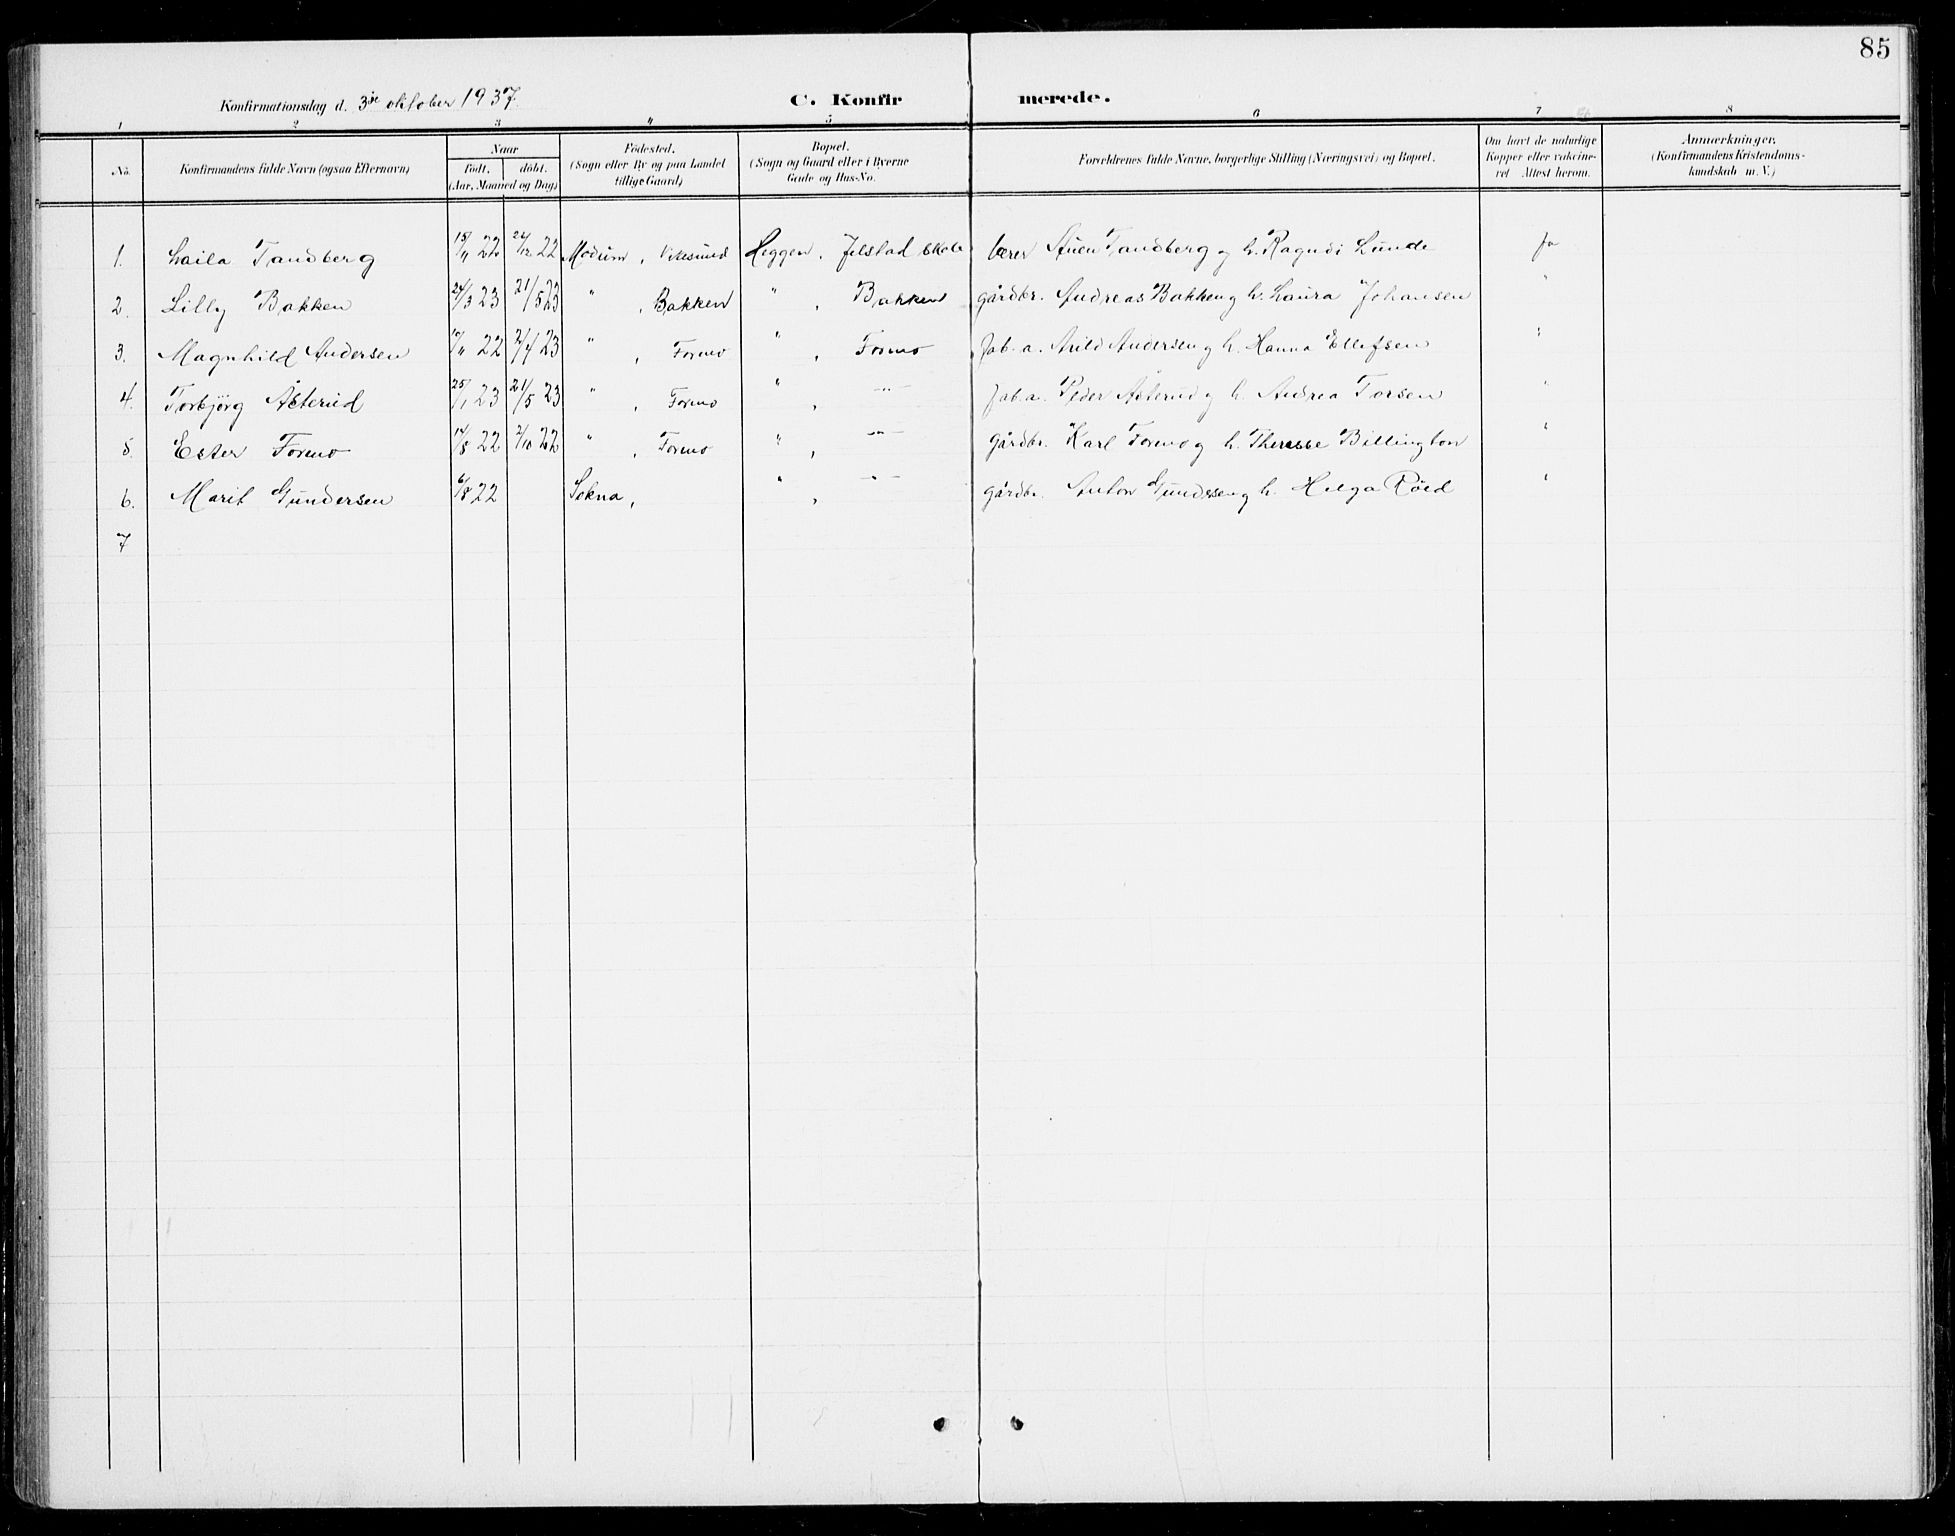 85
Konfirmationsdag d. 3je oktober 1937. C. Konfirmerede.
1 2 3 4 5 6 7 8
No. Konfirmandens fulde Navn (ogsaa Efternavn) Naar født. døbt. (Aar, Maaned og Dag) Födested. (Sogn eller By og paa Landet tillige Gaard) Bopæl. (Sogn og Gaard eller i Byerne Gade og Hus-No. Forældrenes fulde Navne, borgerlige Stilling (Næringsvei) og Bopæl. Om havt de naturlige Kopper eller vakcineret. Attest herom. Anmærkninger. (Konfirmandens Kristendomskundskab m. V.)
1. Laila Tandberg 15/11 22 26/12 22 Modum, Vikesund Heggen, Jelstad skole lærer Tandberg og h. Ragndi Lunde Ja
2. Lilly Bakken 24/3 23 21/5 23 " , Bakken " , Bakken gårdbr. Andreas Bakken og h. Laura Johansen "
3. Magnhild Andersen 22 2/4 23 " , Formo " , Formo fab.a. Arild Andersen og h. Hanna Ellefsen "
4. Torbjørg Åsterud 25/1 23 21/5 23 " , Formo " , —"— fab.a. Peder Åsterud og h. Andrea Torsen "
5. Ester Formo 14/8 22 2/10 22 " , Formo " , —"— gårdbr. Karl Formo og h. Therese Billington "
6. Marit Gundersen 6/8 22 Sokna, " , —"— gårdbr. Anton Gundersen og h. Helga Röed "
7